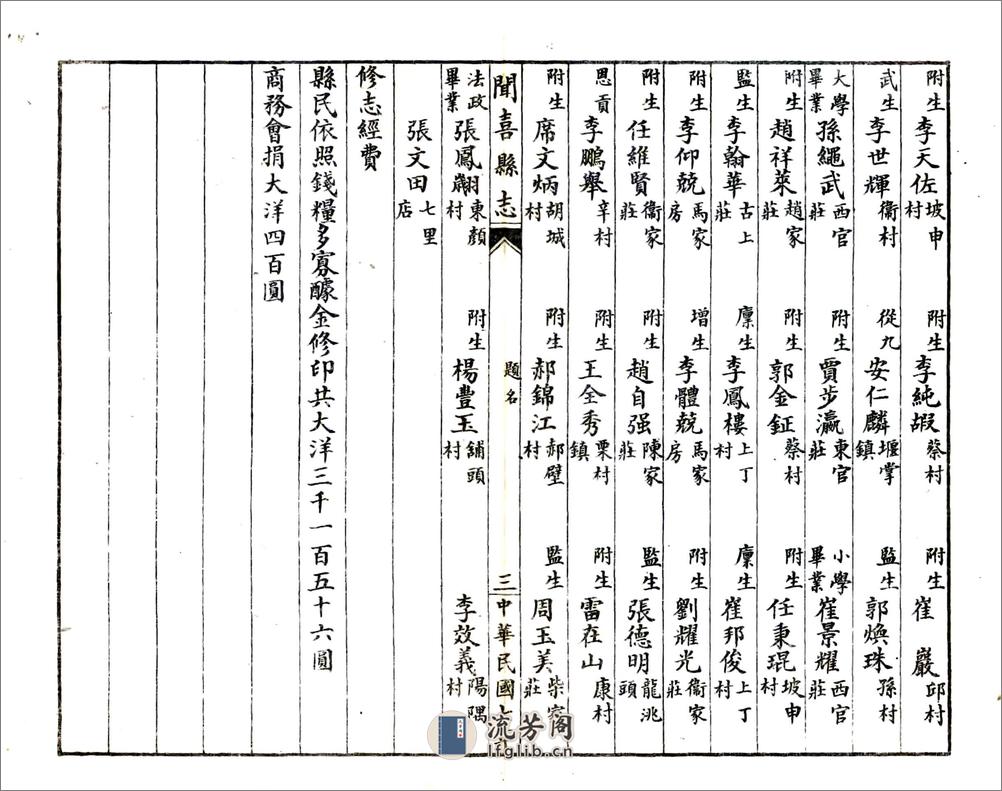 附生李天佐坡申村 附生李純嘏蔡村 附生崔巖邱村
武生李世輝衞村 從九安仁麟堰掌鎮 監生郭煥珠孫村
大學畢業孫繩武西官莊 附生賈步瀛東官莊 小學畢業崔景耀西官莊
附生趙祥萊趙家莊 附生郭金鉦蔡村 附生任秉琨坡申村
監生李翰華古上莊 廩生李鳳樓上丁村 廩生崔邦俊上丁村
附生李仰兢馬家房 增生李體兢馬家房 附生劉耀光衞家莊
附生任維賢衞家莊 附生趙自强陳家莊 監生張德明龍洮頭
恩貢李鵬舉辛村 附生王全秀栗村鎮 附生雷在山康村
附生席文炳胡城村 附生郝錦江郝壁村 監生周玉美柴家莊
聞喜縣志 題名 三 中華民國
法政畢業張鳳翽東顏村 附生楊豐玉舖頭村 李效義陽隅村
張文田七里店
修志經費
縣民依照錢糧多寡醵金修印共大洋三千一百五十六圓
商務會捐大洋四百圓
流芳阁
lfglib.cn